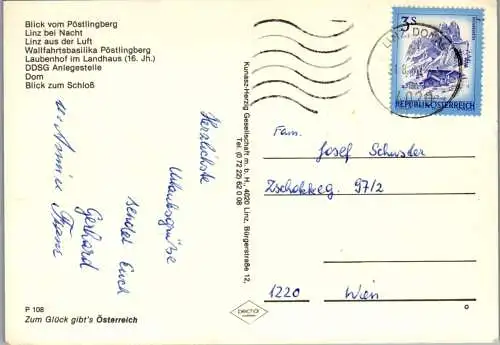 Blick vom Pöstlingberg
Linz bei Nacht
Linz aus der Luft
Wallfahrtsbasilika Pöstlingberg
Laubenhof im Landhaus (16. Jh.)
DDSG Anlegestelle
Dom
Blick zum Schloß
Herzlichste
Urlaubsgrüße
sendet Euch
Gerhard
P 108
Zum Glück gibt's Österreich
Kunasz-Herzig Gesellschaft m. b. H., 4020 Linz, Bürgerstraße 12,
Tel. (0 72 22) 62 0 08
3S
REPUBLIK ÖSTERREICH
4020
Fam.
Josef Schuster
Zschokkeg. 97/2
1220 Wien